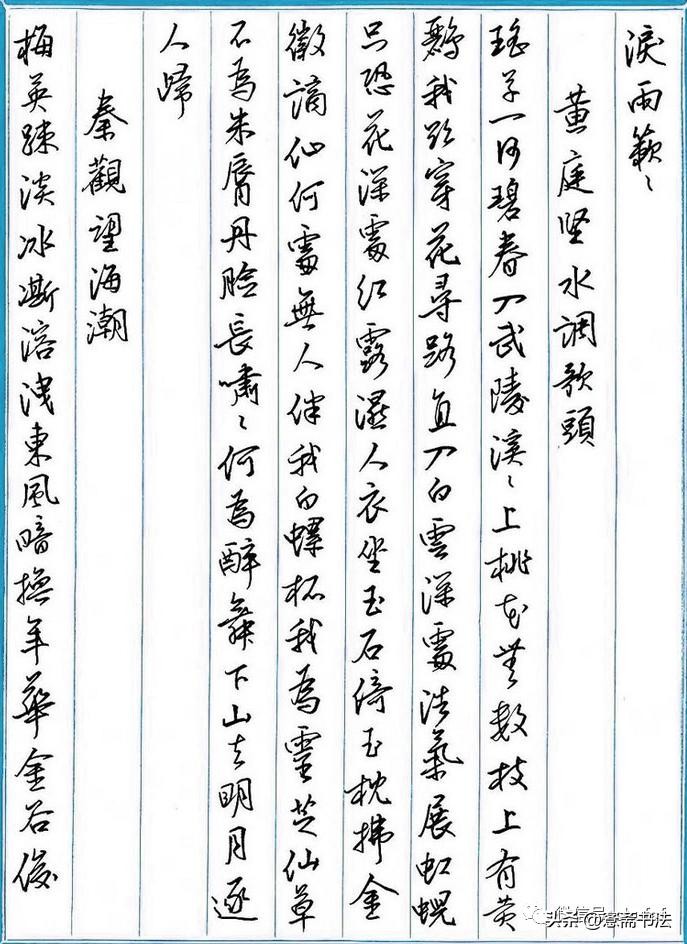 淚雨簌〻
黄庭坚水調歌頭
瑤草一何碧春入武陵溪〻上桃花無數枝上有黄
鸝我欲穿花尋路直入白雲深處浩氣展虹蜺
只恐花深處紅露濕人衣坐玉石倚玉枕拂金
徽謫仙何處無人伴我白螺杯我為靈芝仙草
不為朱脣丹臉長嘯〻何為醉舞下山去明月逐
人歸
秦觀望海潮
梅英疎淡冰澌溶洩東風暗換年華金谷俊
头条 @斋书法